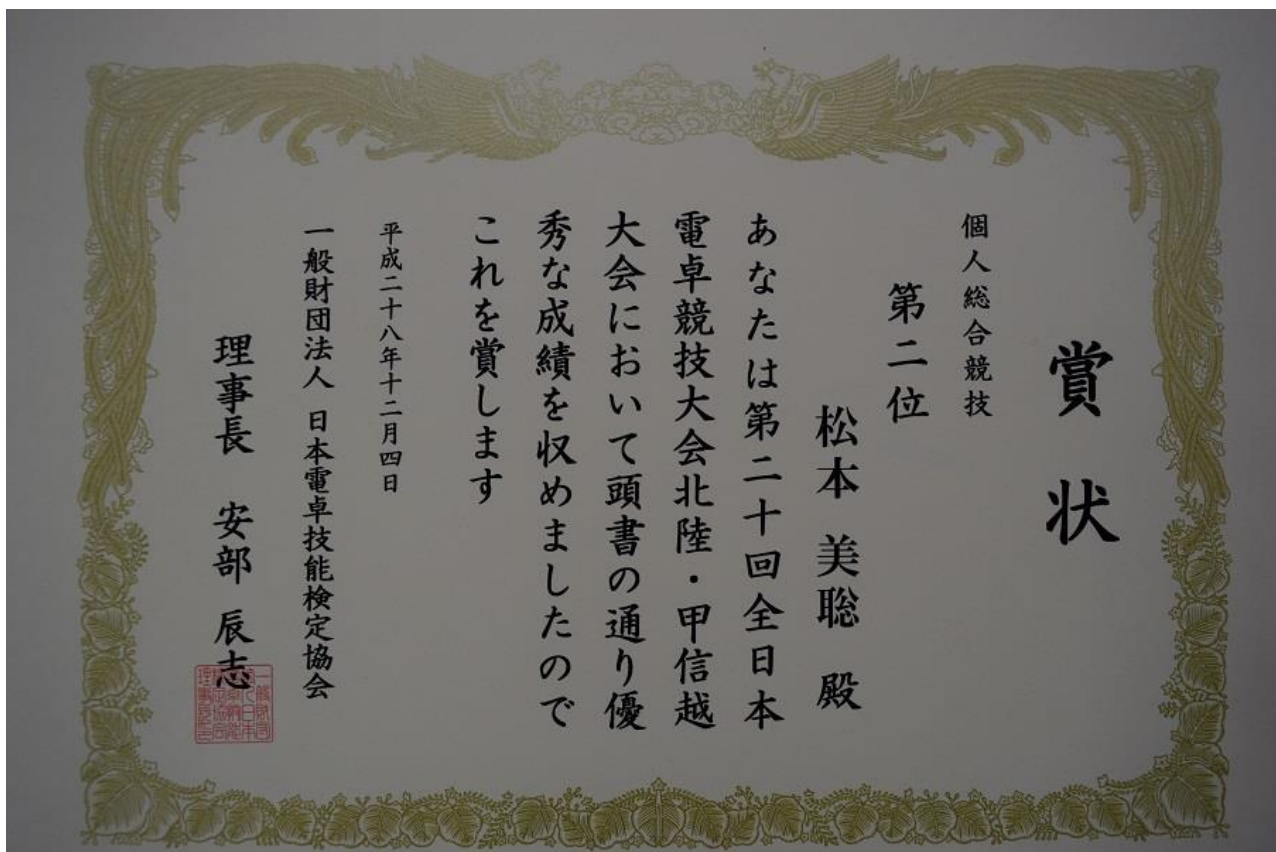 賞状
個人総合競技
第二位
松本 美聡 殿
あなたは第二十回全日本
電卓競技大会北陸・甲信越
大会において頭書の通り優
秀な成績を収めましたので
これを賞します
平成二十八年十二月四日
一般財団法人 日本電卓技能検定協会
理事長 安部 辰志